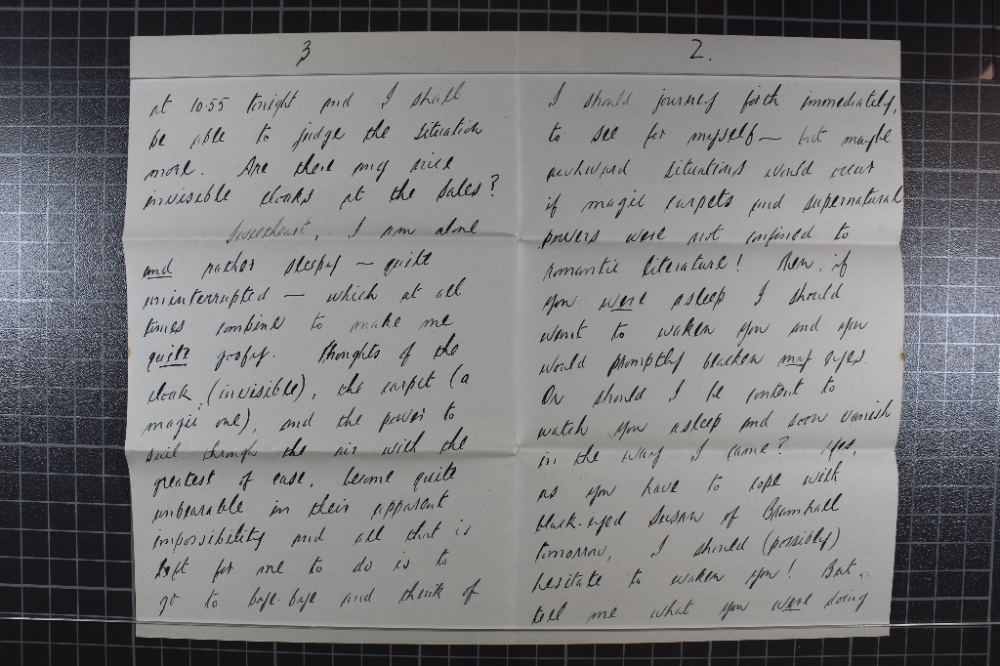 2.
I should journey forth immediately,
to see for myself — but maybe
awkward situations would occur
if magic carpets and supernatural
powers were not confined to
romantic literature! Then, if
you were asleep I should
want to waken you and you
would promptly blacken my eyes.
Or should I be content to
watch you asleep and soon vanish
in the way I came? Yes,
as you have to cope with
black-eyed Susan of Bramhall
tomorrow, I should (possibly)
hesitate to waken you! But,
tell me what you were doing
3
at 10.55 tonight and I shall
be able to judge the situation
more. Are there any nice
invisible cloaks at the sales?
Sweetheart, I am alone
and rather sleepy — quite
uninterrupted — which at all
times combine to make me
quite goofy. Thoughts of the
cloak (invisible), the carpet (a
magic one), and the power to
sail through the air with the
greatest of ease, become quite
unbearable in their apparent
impossibility and all that is
left for me to do is to
go to bye-bye and think of